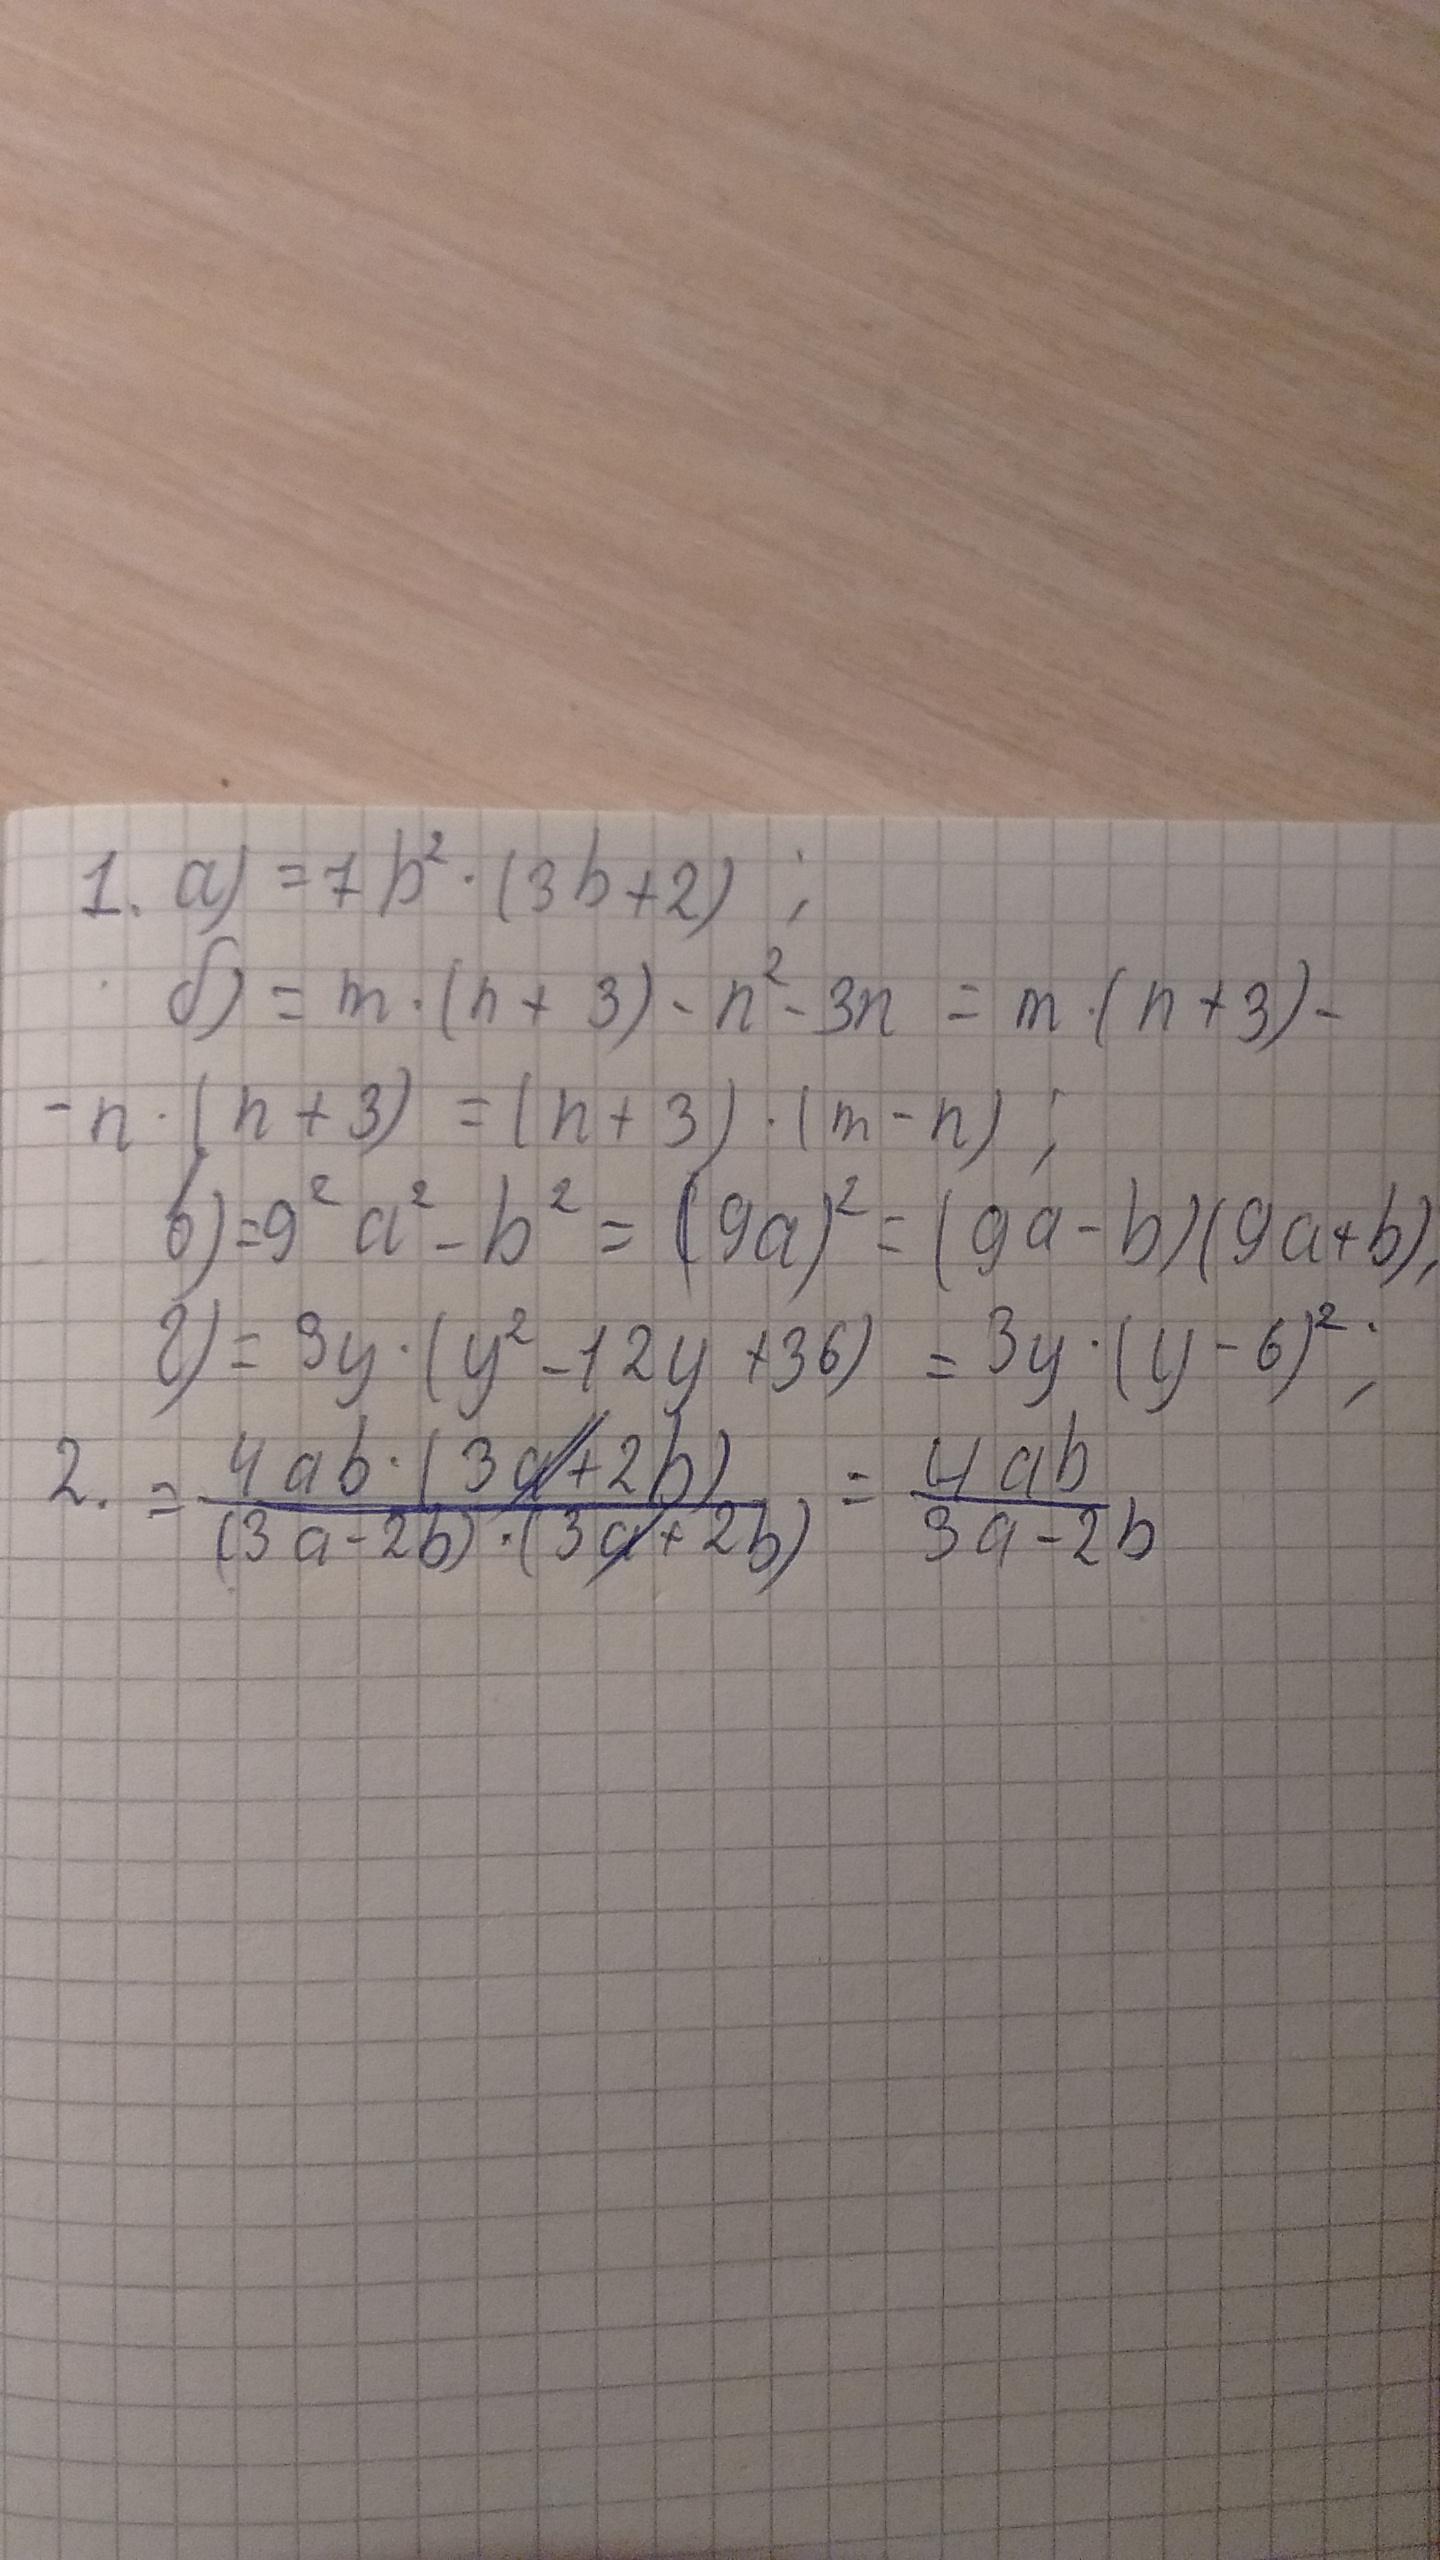 1. а) = 7b² · (3b + 2) ;
б) = m · (n + 3) - n² - 3n = m · (n + 3) -
- n · (n + 3) = (n + 3) · (m - n) ;
в) = 9² a² - b² = (9a)² = (9a - b)(9a + b),
г) = 3y · (y² - 12y + 36) = 3y · (y - 6)² ;
2. = 4ab · (3a + 2b) / (3a - 2b) · (3a + 2b) = 4ab / 3a - 2b